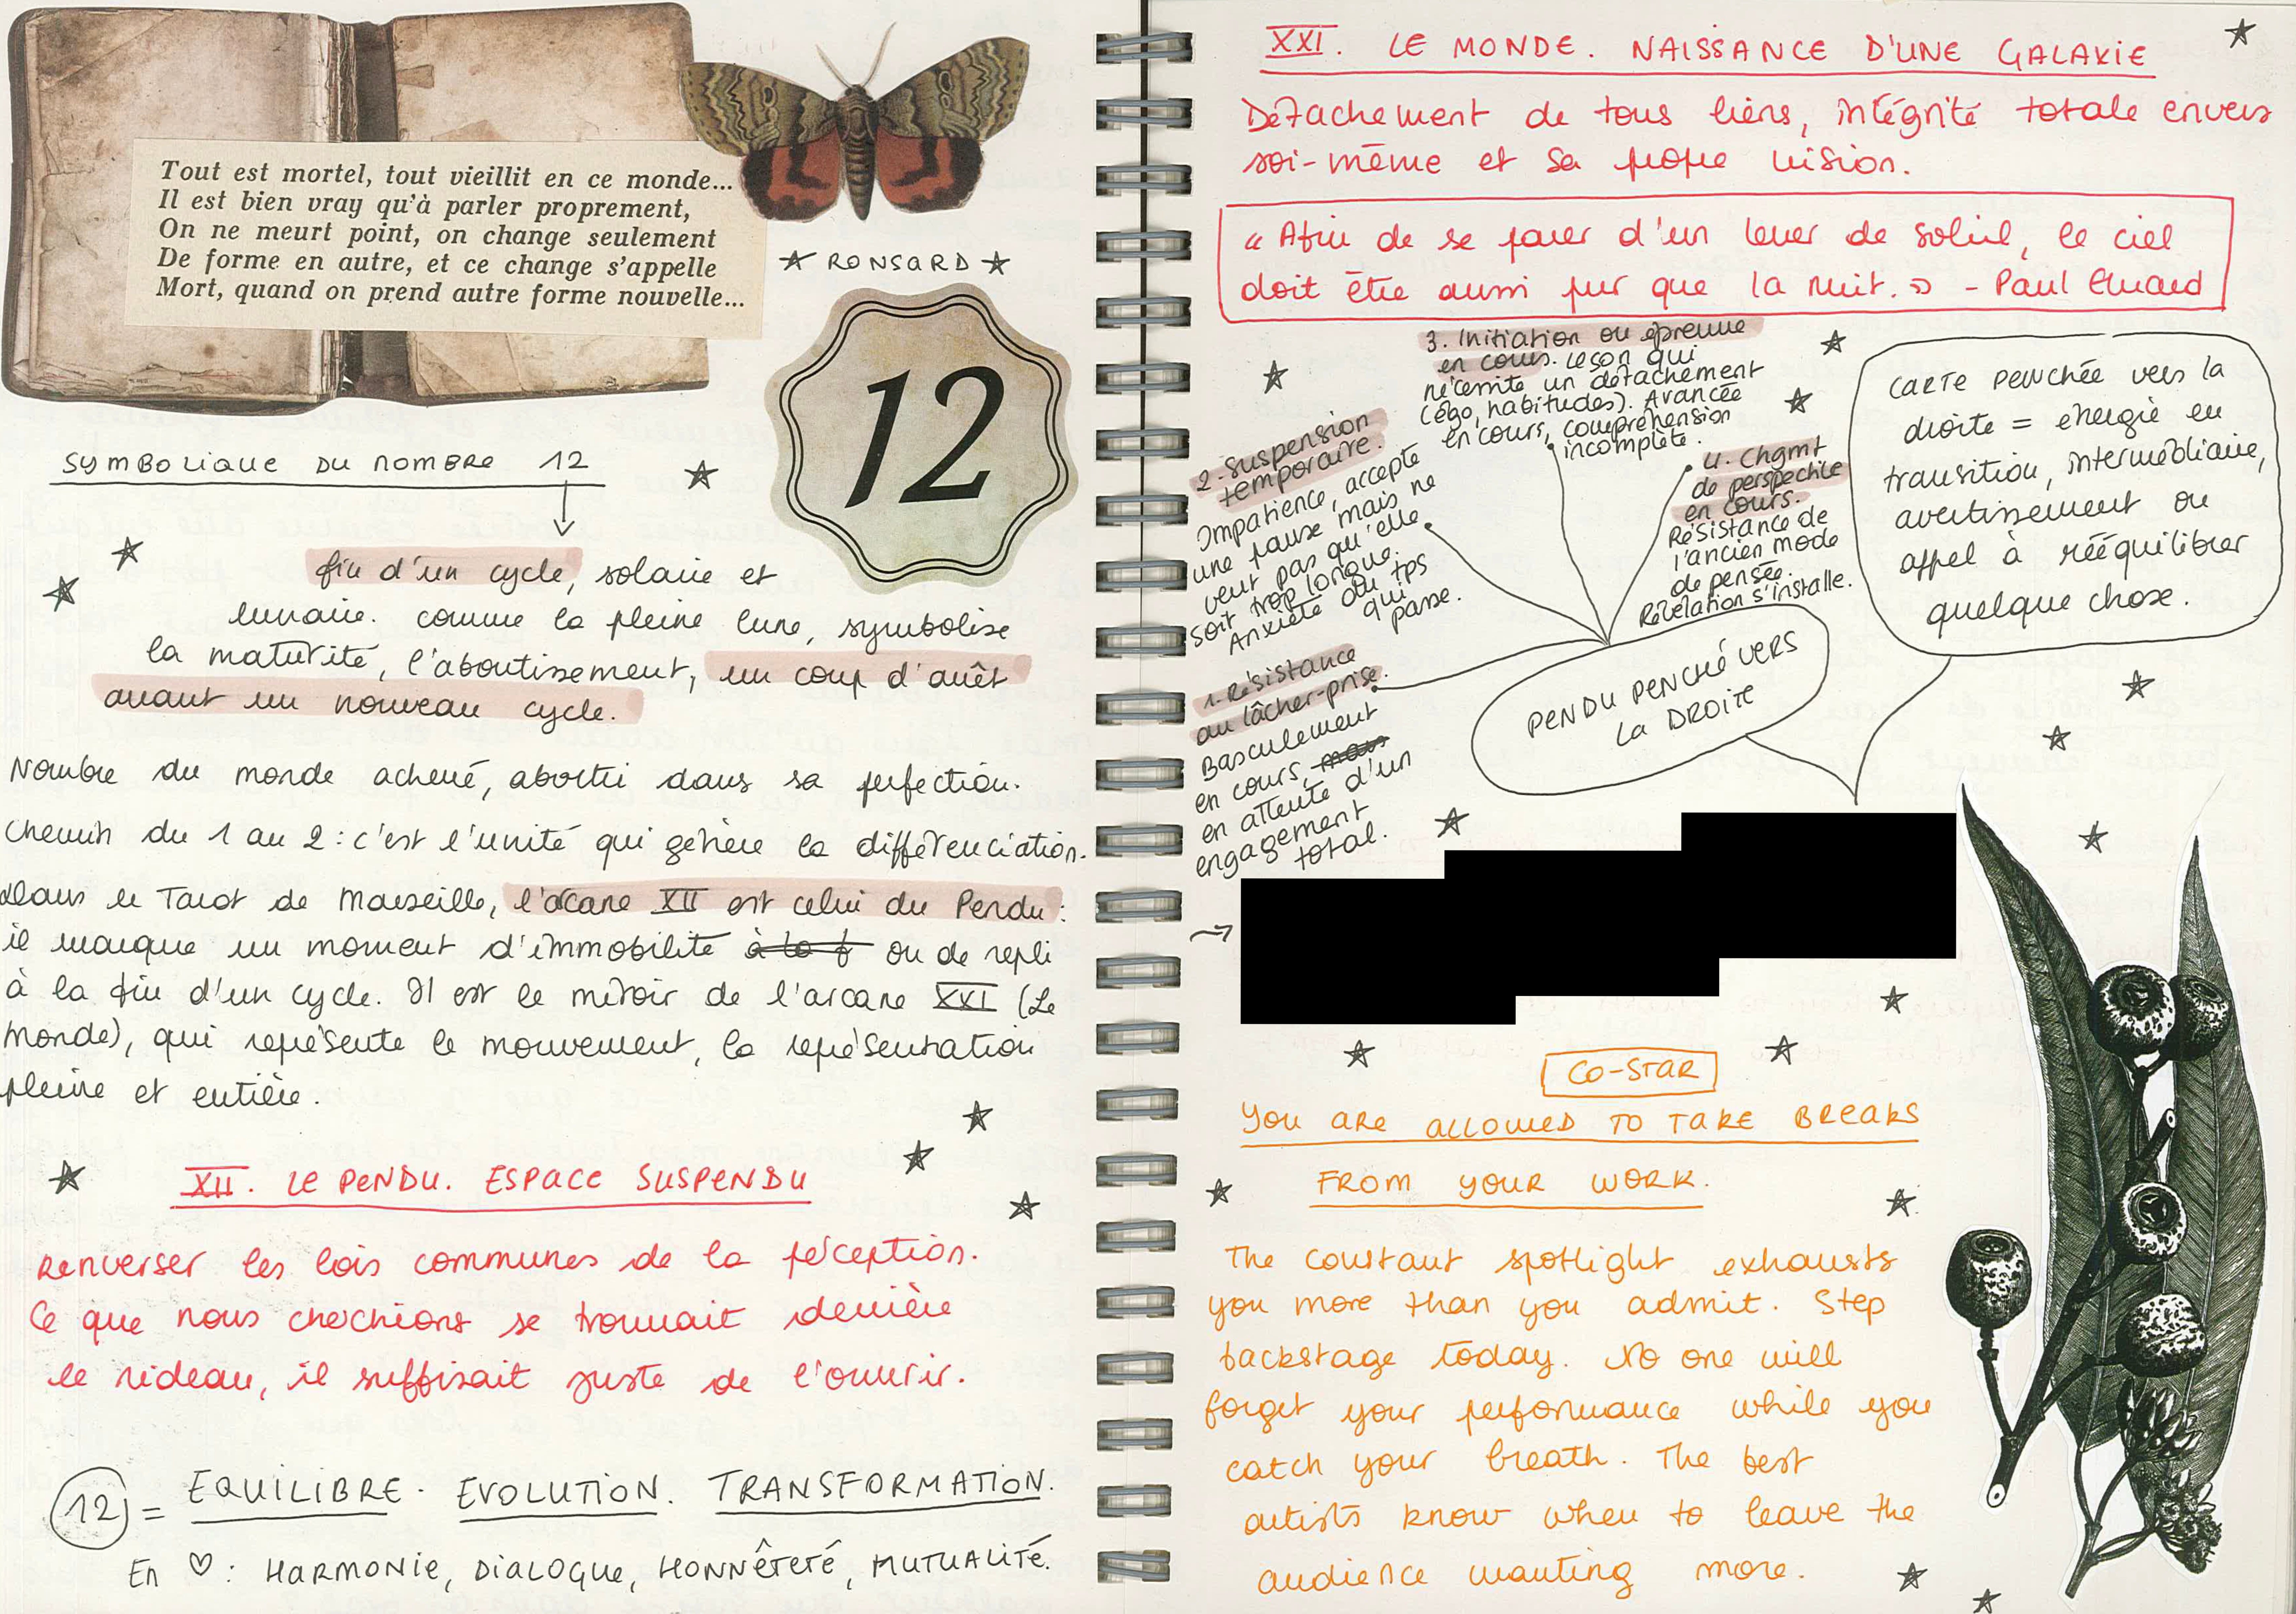 Tout est mortel, tout vieillit en ce monde...
Il est bien vray qu'à parler proprement,
On ne meurt point, on change seulement
De forme en autre, et ce change s'appelle
Mort, quand on prend autre forme nouvelle...
RONSARD
12
SYMBOLIQUE DU NOMBRE 12
fin d'un cycle, solaire et
lunaire. comme la pleine lune, symbolise
la maturité, l'aboutissement, un coup d'arrêt
avant un nouveau cycle.
Nombre du monde achevé, abouti dans sa perfection.
Chemin du 1 au 2 : c'est l'unité qui génère la différenciation.
Dans le Tarot de Marseille, l'arcane XII est celui du Pendu :
il marque un moment d'immobilité à la f ou de repli
à la fin d'un cycle. Il est le miroir de l'arcane XXI (Le
Monde), qui représente le mouvement, la représentation
pleine et entière.
XII. LE PENDU. ESPACE SUSPENDU
Renverser les lois communes de la perception.
Ce que nous cherchions se trouvait derrière
le rideau, il suffisait juste de l'ouvrir.
12 = EQUILIBRE. EVOLUTION. TRANSFORMATION.
En ♡ : HARMONIE, DIALOGUE, HONNÊTETÉ, MUTUALITÉ.
XXI. LE MONDE. NAISSANCE D'UNE GALAXIE
Détachement de tous liens, intégrité totale envers
soi-même et sa propre vision.
« Afin de se parer d'un lever de soleil, le ciel
doit être aussi pur que la nuit. » - Paul Eluard
3. Initiation ou épreuve
en cours. Leçon qui
nécessite un détachement
(égo, habitudes). Avancée
en cours, compréhension
incomplète.
2. Suspension
temporaire.
Impatience, accepte
une pause mais ne
veut pas qu'elle
soit trop longue.
Anxiété du tps
qui
passe.
4. Chgmt
de perspective
en cours.
Résistance de
l'ancien mode
de pensée.
Révélation s'installe.
CARTE PENCHÉE vers la
droite = énergie en
transition, intermédiaire,
avertissement ou
appel à rééquilibrer
quelque chose.
1. Résistance
au lâcher-prise.
Basculement
en cours, mais
en attente d'un
engagement
total.
PENDU PENCHÉ VERS
LA DROITE
CO-STAR
YOU ARE ALLOWED TO TAKE BREAKS
FROM YOUR WORK.
The constant spotlight exhausts
you more than you admit. Step
backstage today. No one will
forget your performance while you
catch your breath. The best
artists know when to leave the
audience wanting more.